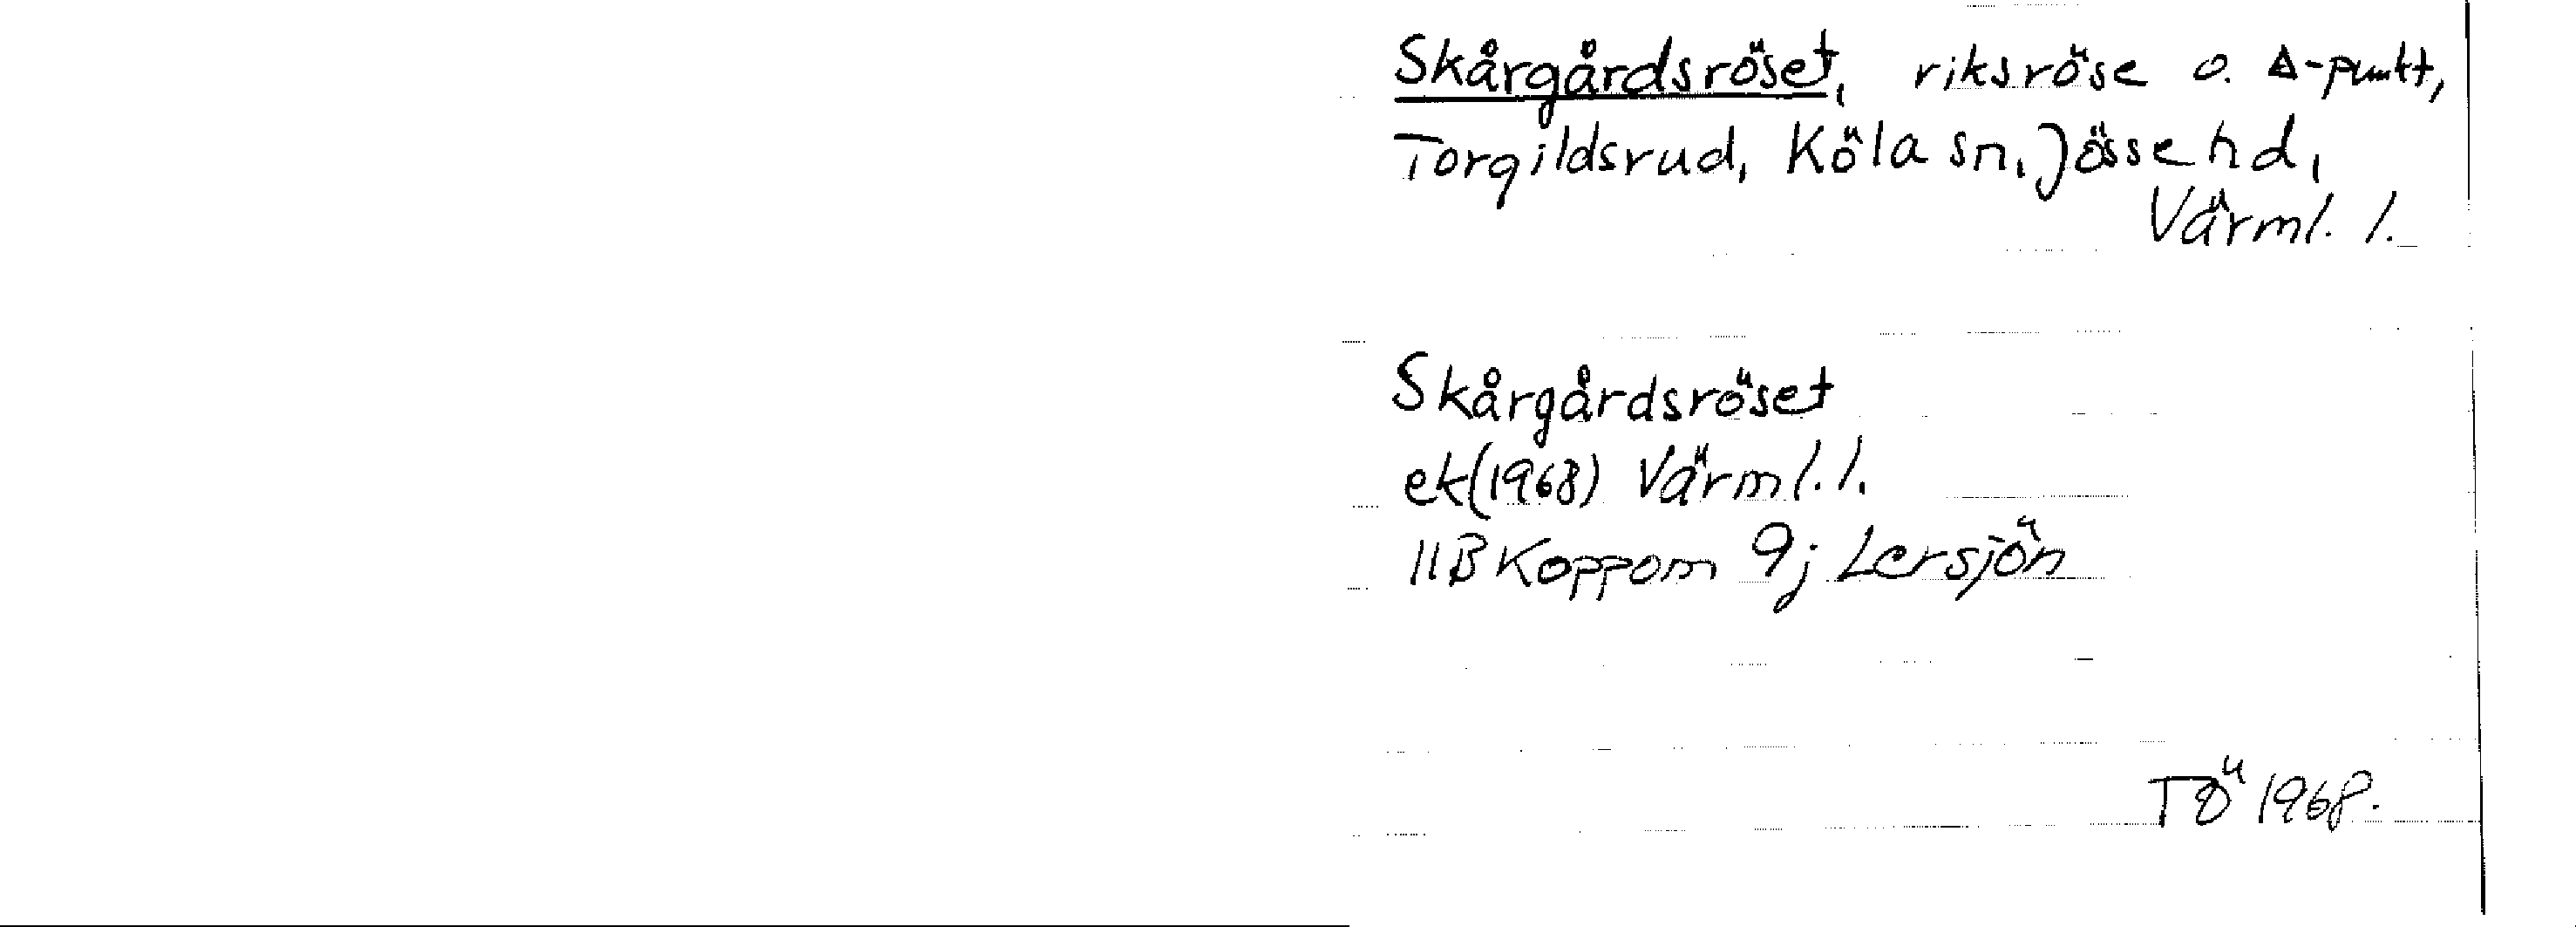 Skårgårdsröset, riksröse o. Δ-punkt,
Torgildsrud, Köla sn, Jösse hd,
Värml. l.
Skårgårdsröset
ek(1968) Värml. l.
11B Koppom 9j Lersjön
TÖ 1968.